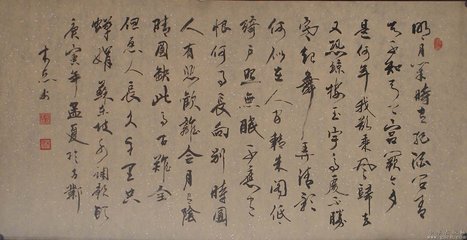 明月幾時有把酒問青
天不知天上宫阙今夕
是何年我欲乘风歸去
又恐瓊楼玉宇高處不勝
寒起舞弄清影
何似在人间轉朱阁低
绮户照無眠不應有
恨何事長向别時圓
人有悲歡離合月有陰
晴圓缺此事古難全
但願人長久千里共
嬋娟 蘇東坡水調歌頭
庚寅年孟夏於古